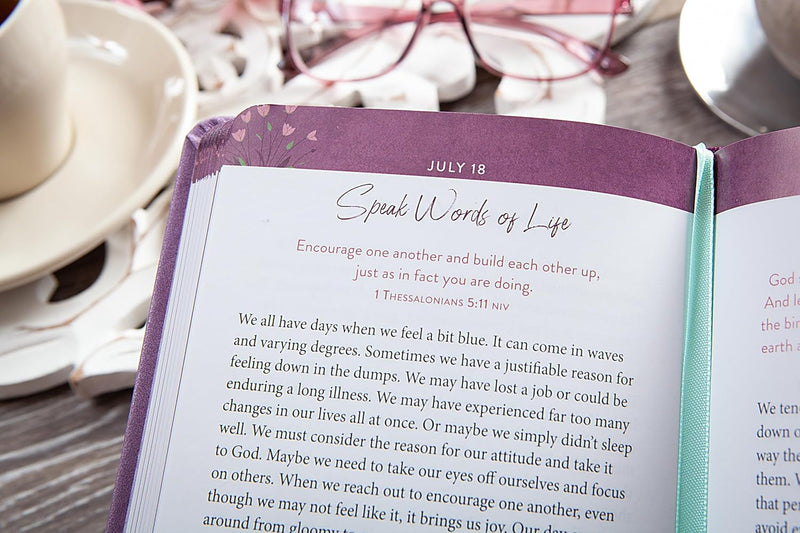 JULY 18
Speak Words of Life
Encourage one another and build each other up,
just as in fact you are doing.
1 Thessalonians 5:11 NIV
We all have days when we feel a bit blue. It can come in waves
and varying degrees. Sometimes we have a justifiable reason for
feeling down in the dumps. We may have lost a job or could be
enduring a long illness. We may have experienced far too many
changes in our lives all at once. Or maybe we simply didn't sleep
well. We must consider the reason for our attitude and take it
to God. Maybe we need to take our eyes off ourselves and focus
on others. When we reach out to encourage one another, even
though we may not feel like it, it brings us joy. Our day
around from gloomy to
God
And le
the bir
earth a
We ten
down o
way the
them. W
that per
avoid e